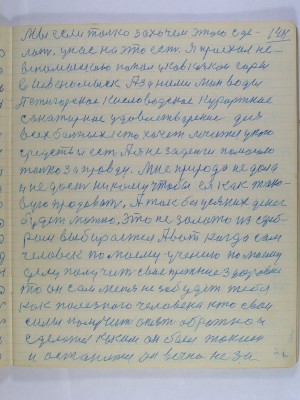 141
Мы если только захочем этого сде-
лать. у нас на это есть. Я приехал не-
вспаханного попал у Кавказкой горы
в Невеномыск А за ними Мин воды
Пятигорское Кисловодское курортное
санаторное удовлетворение для
всех больных кто хочет лечится у кого
средства есть. А я не за деньги помогаю
только за правду. Мне природа не дала
и не дает никому чтобы ея как тако-
вую продовать. А так бы у всяких денег
будет можно. Это не золото из сереб-
ром выбирается А вот когда сам
человек по моему учению по моему
делу получит свое прежнее здоровие
то он сам меня не забудет тебя
как полезного человека кто свои
силы получит опять обратно и
сделается каким он был таким
и останется он вечно не за